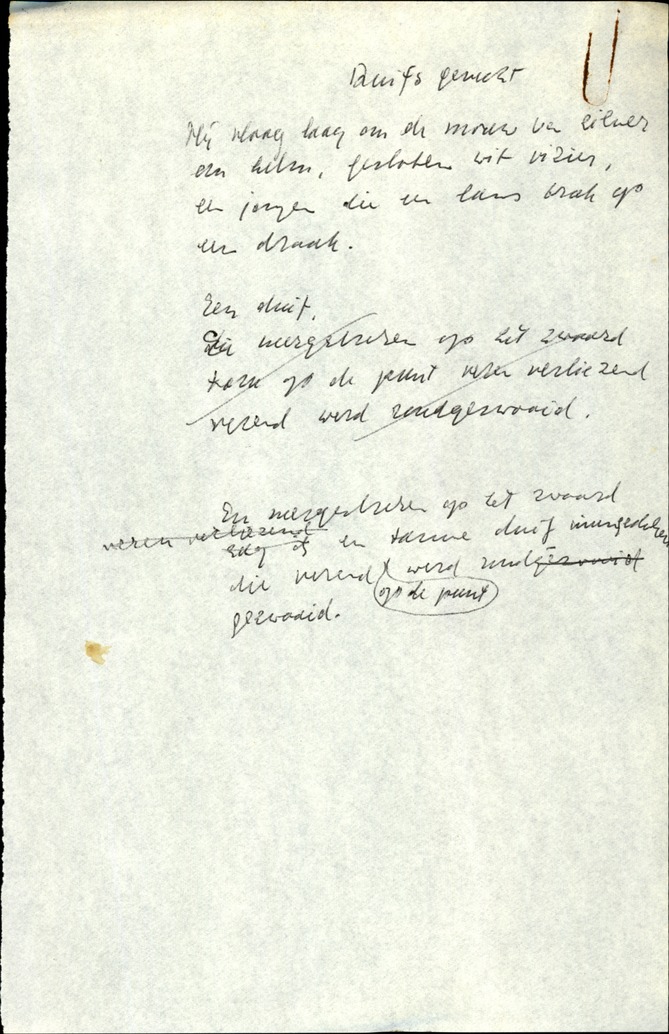 Duifs gevecht
Hij vloog laag om de mouw van zilver
om helm, gesloten wit vizier,
en jongen die een lans brak op
een draak.
Een duif,
die neergestreken op het zwaard
op de punt veren verliezend
wijzend werd rondgezwaaid.
En neergestreken op het zwaard
veren verliezend
zag ik een tamme duif
die wijzend werd rondgezwaaid
op de punt
gezwaaid.